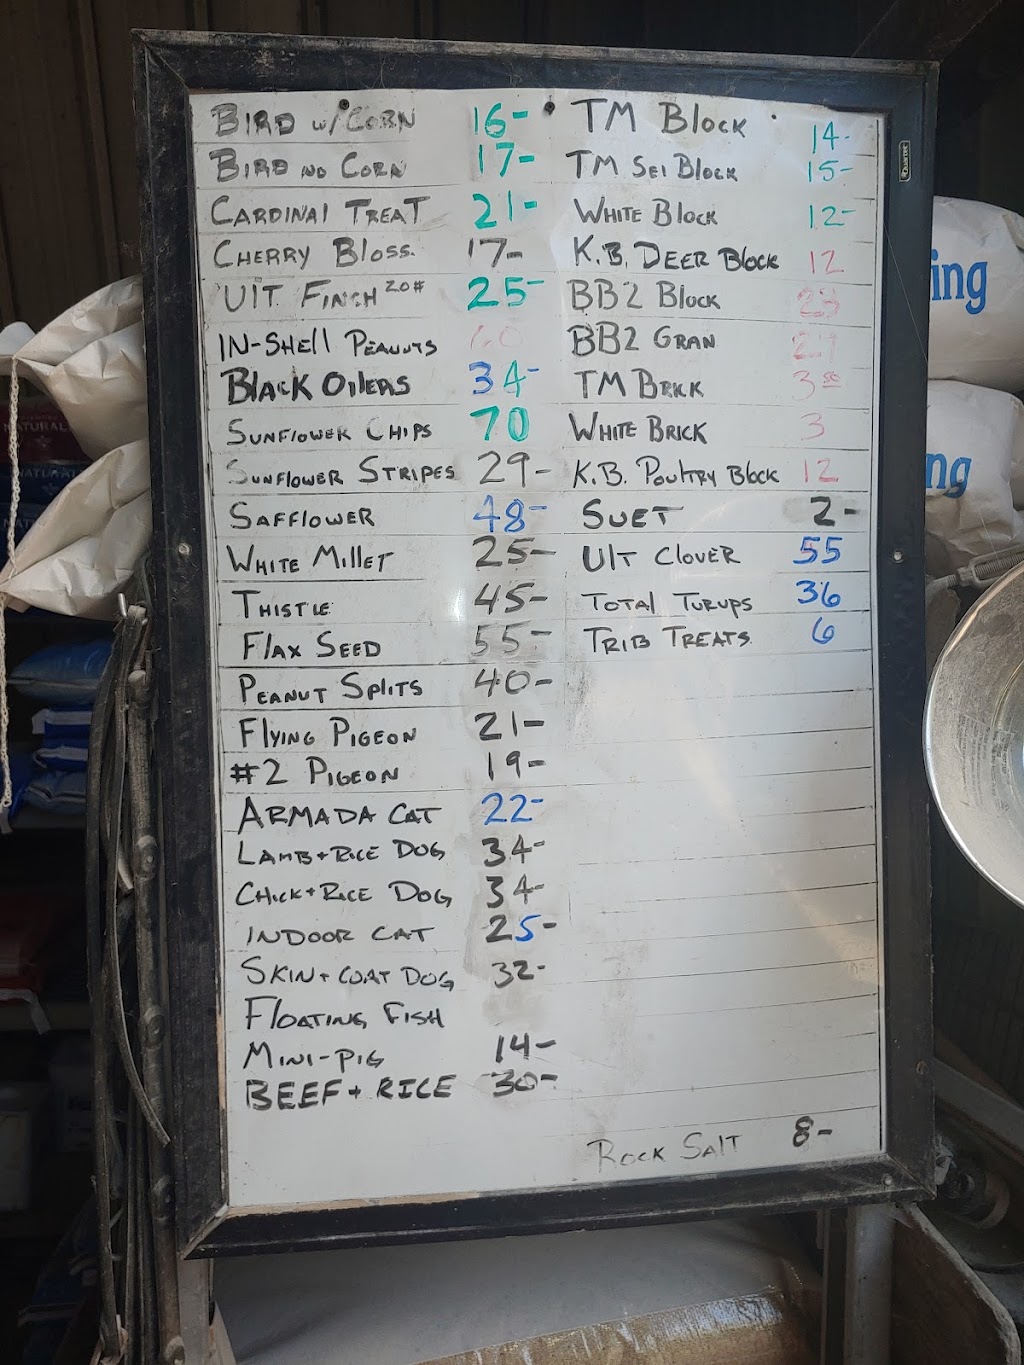 BIRD W/CORN 16-
BIRD NO CORN 17-
CARDINAL TREAT 21-
CHERRY BLOSS. 17-
ULT FINCH 20# 25-
IN-SHELL PEANUTS 60
BLACK OILERS 34-
SUNFLOWER CHIPS 70
SUNFLOWER STRIPES 29-
SAFFLOWER 48-
WHITE MILLET 25-
THISTLE 45-
FLAX SEED 55-
PEANUT SPLITS 40-
FLYING PIGEON 21-
#2 PIGEON 19-
ARMADA CAT 22-
LAMB+RICE DOG 34-
CHICK+RICE DOG 34-
INDOOR CAT 25-
SKIN+COAT DOG 32-
FLOATING FISH
MINI-PIG 14-
BEEF+RICE 30-
TM BLOCK 14-
TM SEL BLOCK 15-
WHITE BLOCK 12-
K.B. DEER BLOCK 12
BB2 BLOCK 23
BB2 GRAN
TM BRICK 3.50
WHITE BRICK 3
K.B. POULTRY BLOCK 12
SUET 2-
ULT CLOVER 55
TOTAL TURUPS 36
TRIB TREATS 6
ROCK SALT 8-
Quartet
ing
ng
NATURAL
NATURAL